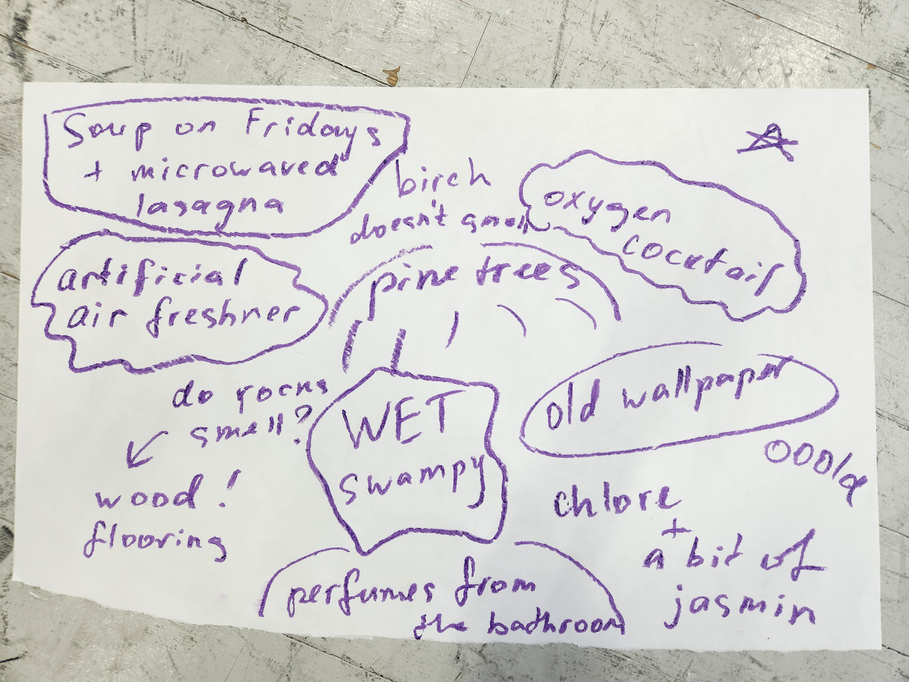 Soup on Fridays
+ microwaved
lasagna
birch
doesn't smell
oxygen
cocktail
artificial
air freshner
pine trees
do rocks
smell?
WET
swampy
old wallpaper
ooold
wood!
flooring
chlore
+
a bit of
jasmin
perfumes from
the bathroom